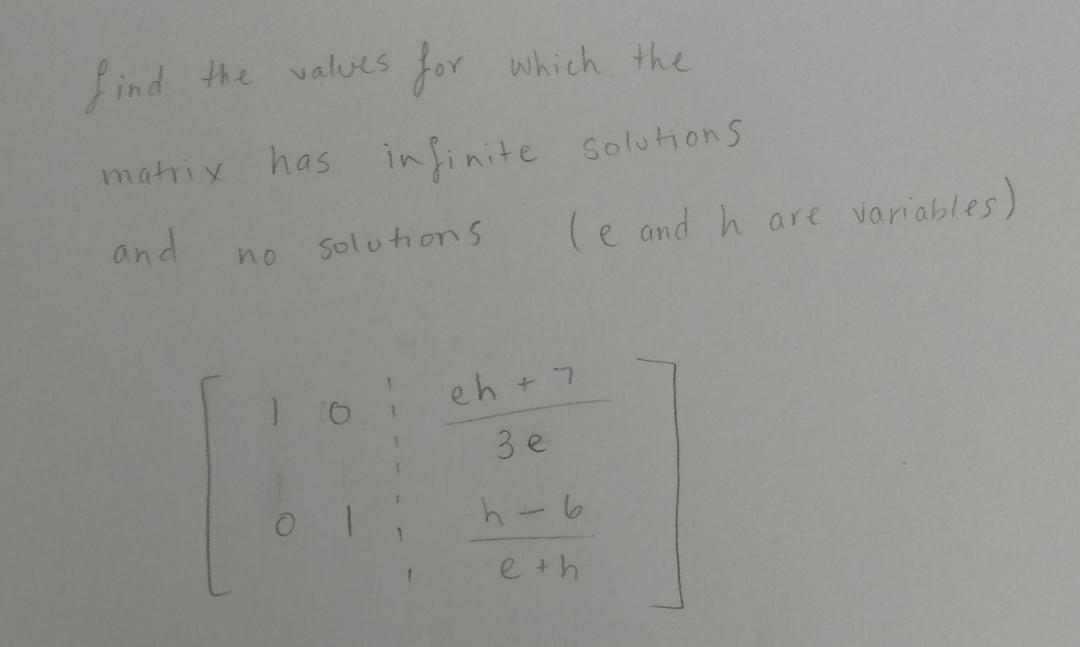 find the values for which the
matrix has infinite solutions
and no solutions (e and h are variables)
1 0 eh + 7
3e
0 1 h - 6
e + h